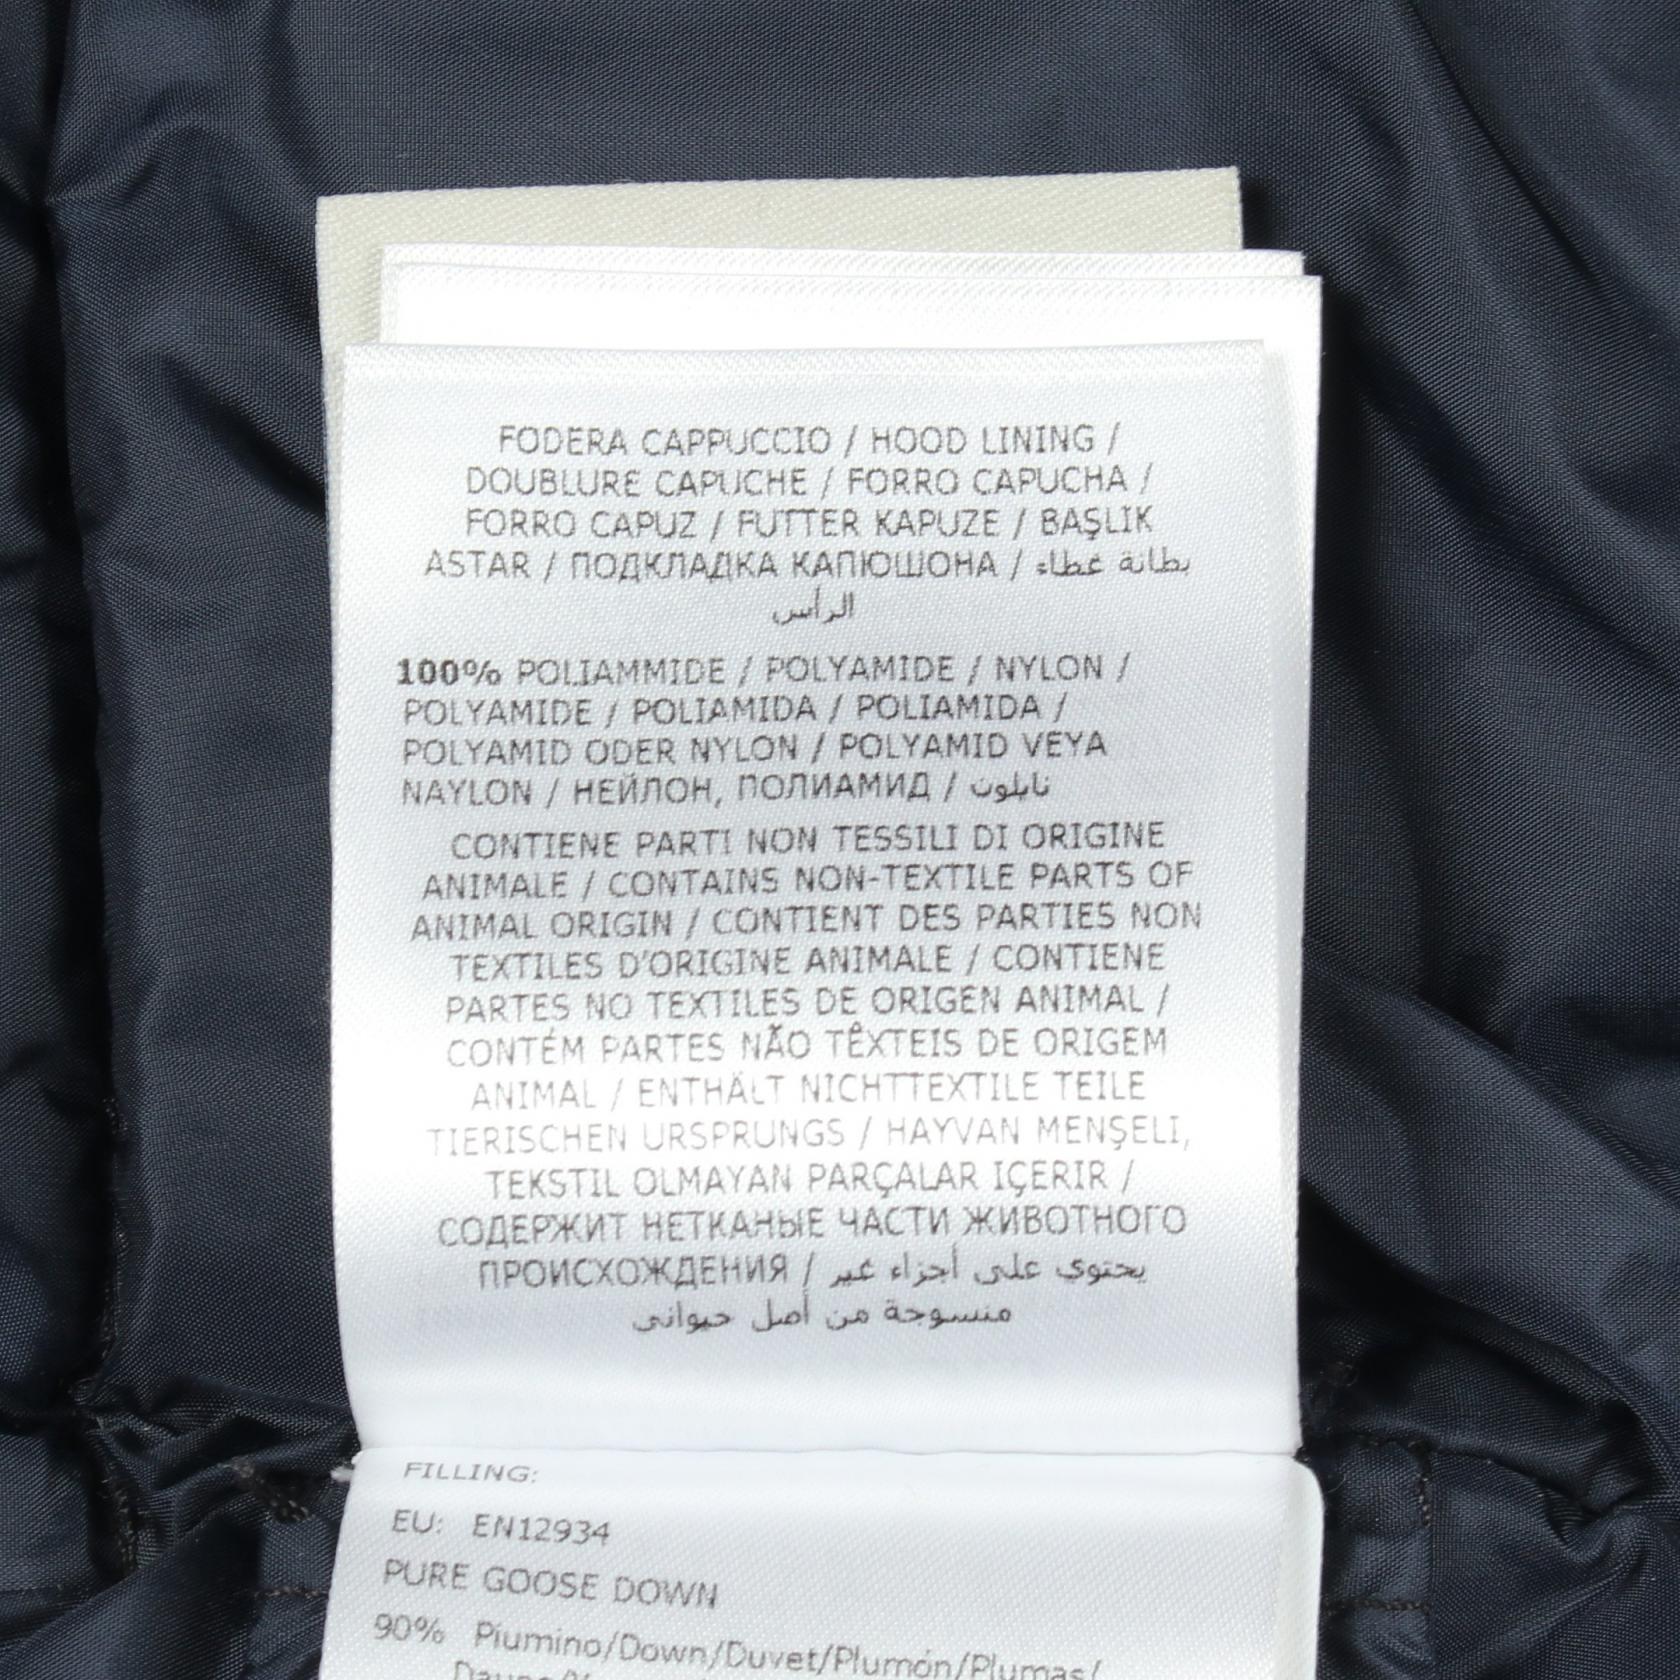 FODERA CAPPUCCIO / HOOD LINING /
DOUBLURE CAPUCHE / FORRO CAPUCHA /
FORRO CAPUZ / FUTTER KAPUZE / BAŞLIK
ASTAR / ПОДКЛАДКА КАПЮШОНА / بطانة غطاء
الرأس
100% POLIAMMIDE / POLYAMIDE / NYLON /
POLYAMIDE / POLIAMIDA / POLIAMIDA /
POLYAMID ODER NYLON / POLYAMID VEYA
NAYLON / НЕЙЛОН, ПОЛИАМИД / نايلون
CONTIENE PARTI NON TESSILI DI ORIGINE
ANIMALE / CONTAINS NON-TEXTILE PARTS OF
ANIMAL ORIGIN / CONTIENT DES PARTIES NON
TEXTILES D'ORIGINE ANIMALE / CONTIENE
PARTES NO TEXTILES DE ORIGEN ANIMAL /
CONTÉM PARTES NÃO TÊXTEIS DE ORIGEM
ANIMAL / ENTHÄLT NICHTTEXTILE TEILE
TIERISCHEN URSPRUNGS / HAYVAN MENŞELI,
TEKSTIL OLMAYAN PARÇALAR IÇERIR /
СОДЕРЖИТ НЕТКАНЫЕ ЧАСТИ ЖИВОТНОГО
ПРОИСХОЖДЕНИЯ / يحتوي على أجزاء غير
منسوجة من أصل حيواني
FILLING:
EU: EN12934
PURE GOOSE DOWN
90% Piumino/Down/Duvet/Plumón/Plumas/